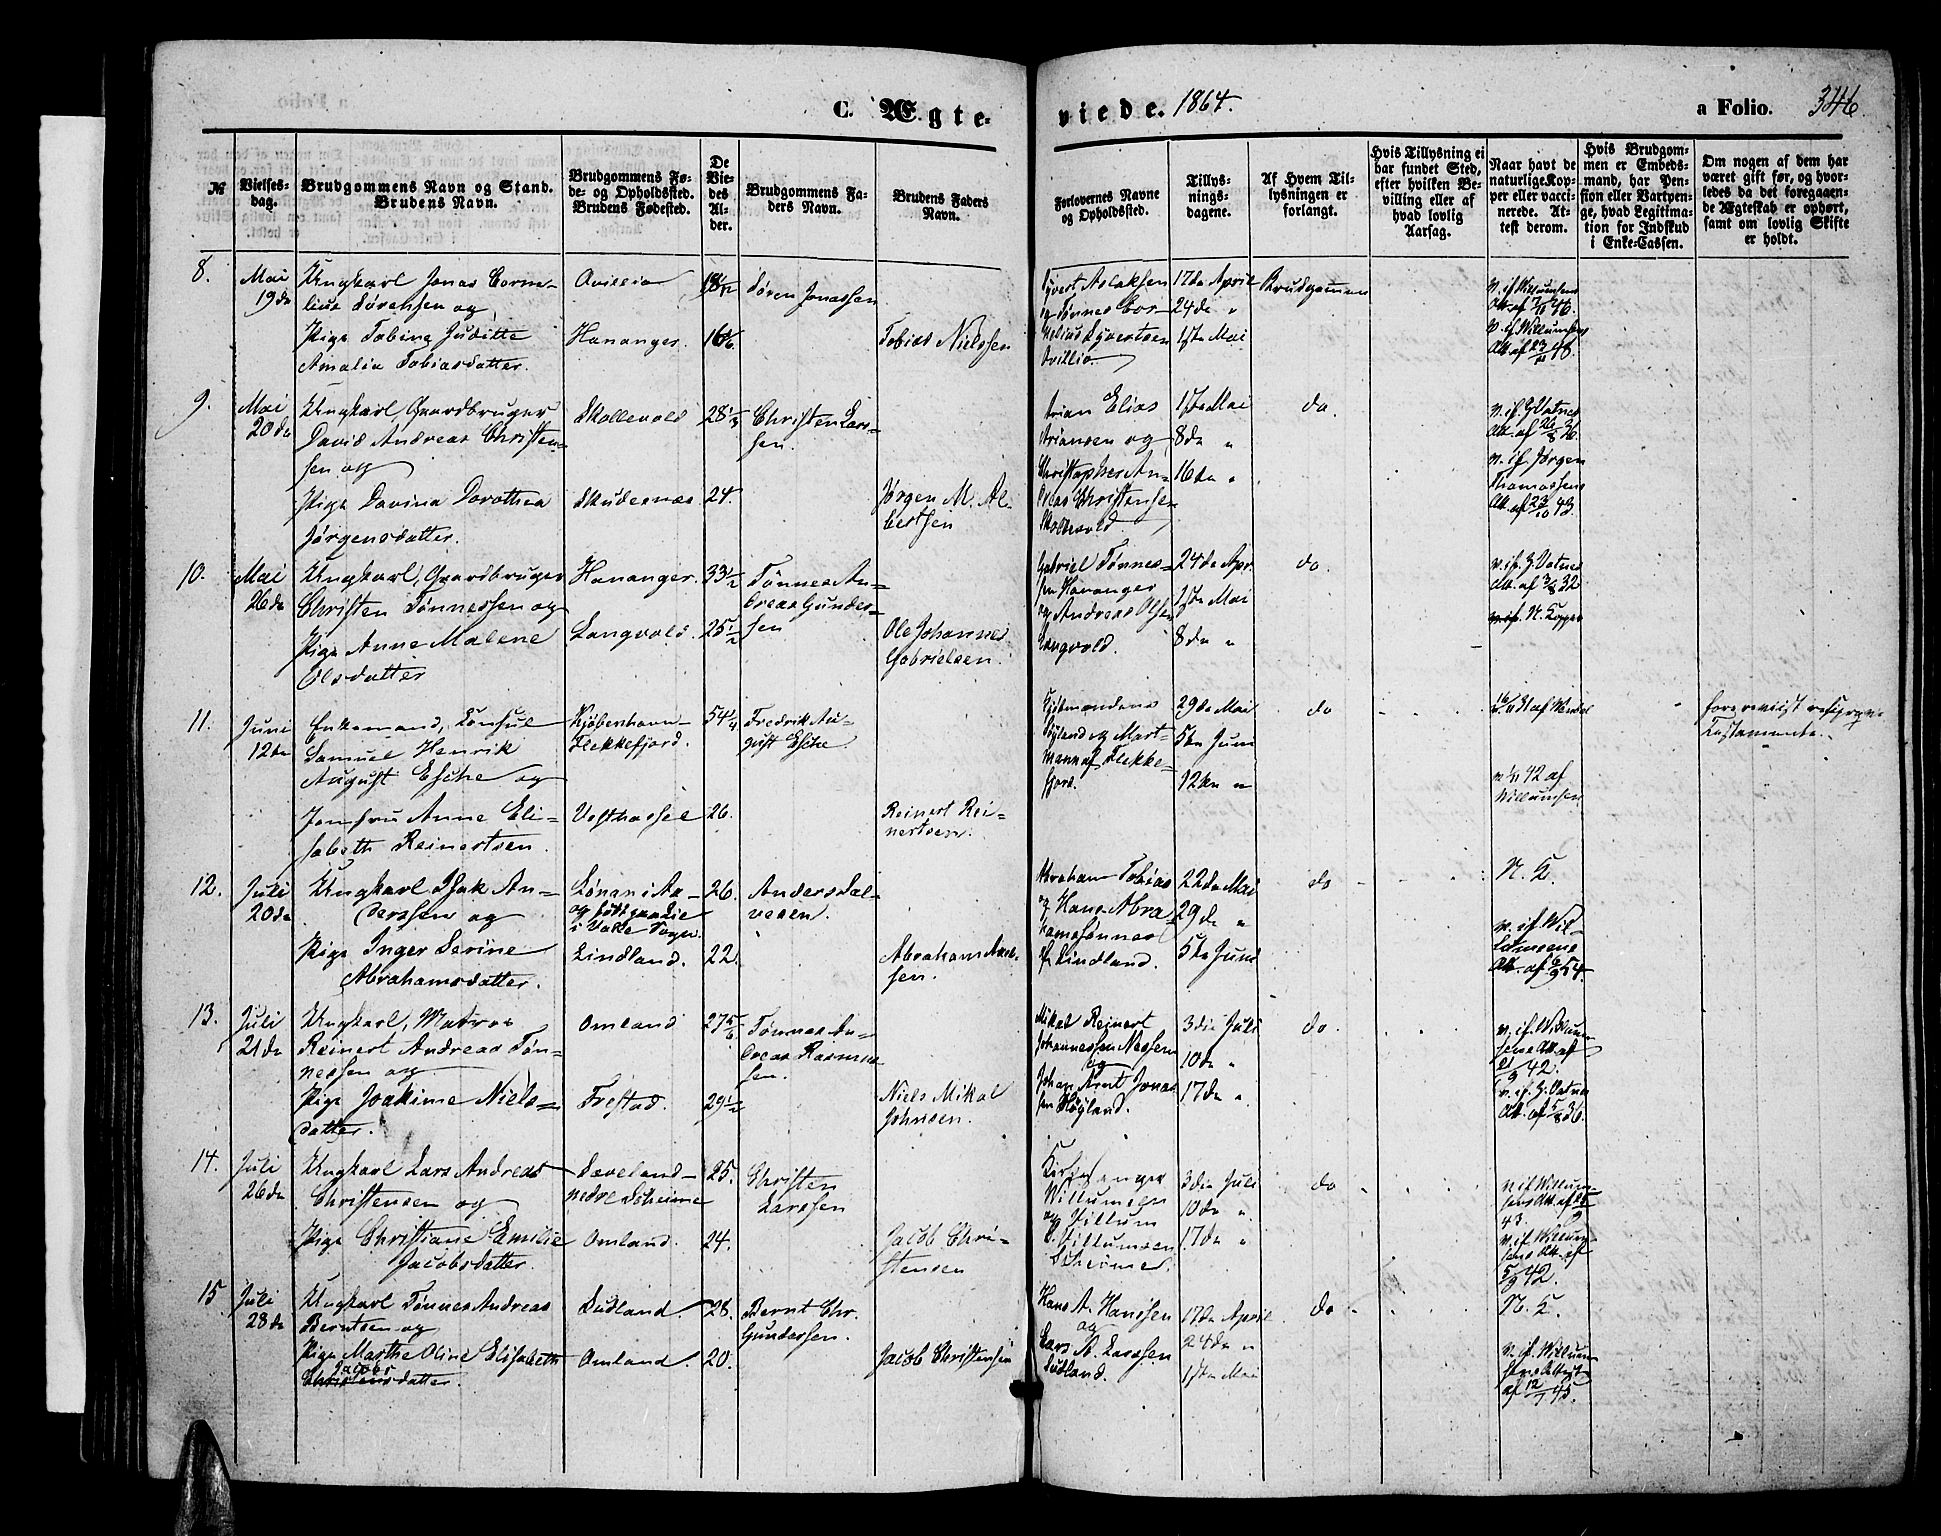 C. Ægte-
viede. 1864.
a Folio. 346.
№
Vielses-
dag.
Brudgommens Navn og Stand.
Brudens Navn.
Brudgommens Fø-
de- og Opholdssted.
Brudens Fødested.
De
Vie-
des
Al-
der.
Brudgommens Fa-
ders Navn.
Brudens Faders
Navn.
Forlovernes Navne
og Opholdssted.
Tillys-
nings-
dagene.
Af Hvem Til-
lysningen er
forlangt.
Hvis Tillysning ei
har fundet Sted,
efter hvilken Be-
villing eller af
hvad lovlig
Aarsag.
Naar havt de
naturlige Kop-
per eller vacci-
nerede. At-
test derom.
Hvis Brudgom-
men er Embeds-
mand, har Pen-
sion eller Vartpen-
ge, hvad Legitima-
tion for Indskud
i Enke-Cassen.
Om nogen af dem har
været gift før, og hvor-
ledes da det foregaaen-
de Ægteskab er ophørt,
samt om lovlig Skifte
er holdt.
8.
Mai
19de
Ungkarl Jonas Corne-
lius Sørensen og
Pige Tobine Juditte
Amalia Tobiasdatter.
Hananger.
Søren Jonassen
Tobias Nielssen
17de April
24de "
1ste Mai
Brudgommen
9.
Mai
20de
Ungkarl, Gaardbruger
David Andreas Christen-
sen og
Pige Davina Dorothea
Jørgensdatter.
Skollevold
Skudesnæs
28 1/3
24.
Christen Lars-
sen.
Jørgen M. Al-
bertsen
Arian Elias
Ariansen og
Christopher An-
dreas Christensen
Skollevold.
1ste Mai
8de "
16de "
do.
v. if. G. Vatnes
Att. af 26/8 36
v. if. Jørgen
Thomassens
Att. af 23/10 43.
10.
Mai
26de
Ungkarl, Gaardbruger
Christen Tønnessen og
Pige Anne Malene
Olsdatter
Hananger.
Langvold.
33 1/2
25 1/2
Tønnes An-
dreas Gunder-
sen
Ole Johannes
Gabrielsen.
Gabriel Tønnes-
sen Hananger
og Andreas Olsen
Langvold.
24de Apr.
1ste Mai
8de "
do.
v. if. G. Vatnes
Att. af 3/8 32
11.
Juni
12de
Enkemand, Consul
Samuel Henrik
August Esche og
Jomfru Anne Eli-
sabeth Reinertsen.
Kjøbenhavn-
Flekkefjord.
Vesthassel
54 1/4
26.
Fredrik Au-
gust Esche.
Reinert Rei-
nertsen.
29de Mai
5te Juni
12te "
do
42 af
Willumsen
forevist
Testamente.
12.
Juli
20de
Ungkarl Isak An-
dersen og
Pige Inger Serine
Abrahamsdatter.
Lindland.
26.
22.
Anders Sal-
vesen.
Abraham
sen.
Abraham Tobias
og Hans Abra-
hamsønner
af Lindland.
22de Mai
29de "
5te Juni
do
N. 5.
v. if. Wil-
lumsens
Att. af 6/9 54.
13.
Juli
21de
Ungkarl, Matros
Reinert Andreas Tøn-
nessen og
Pige Joakime Niels-
datter.
Omland
Frestad.
27 5/6
29 1/2
Tønnes An-
dreas Rasmus-
sen.
Niels Mikal
Johnsen.
Mikal Reinert
Johannessen
og
Johan Arnt Jonas-
sen Høyland.
3die Juli
10de "
17de "
do
v. if. Willum-
sens Att. af
21/9 42.
v. if. G. Vatnes
Att. af 5/8 36.
14.
Juli
26de
Ungkarl Lars Andreas
Christensen og
Pige Christiane Emilie
Jacobsdatter.
Omland.
25.
24.
Christen
Larssen
Jacob Chri-
stensen
Kirkesanger
Willumsen
og Villum
Villumsen
3die Juli
10de "
17de "
do
v. if. Willum-
sens Att. af
43.
v. if. Willum-
sens Att. af
5/9 42.
15
Juli
28de
Ungkarl Tønnes Andreas
Berntsen og
Pige Marthe Oline Elisabeth
Jacobs
Christensdatter.
Sudland
Omland.
28.
20.
Bernt Chr.
Gundersen.
Jacob Christensen
Hans A. Hanssen
og
Lars A. Larssen
Sudland.
17de April
24de "
1ste Mai
do
N. 5.
v. if. Willum-
sens Attest
af 12/7 45.